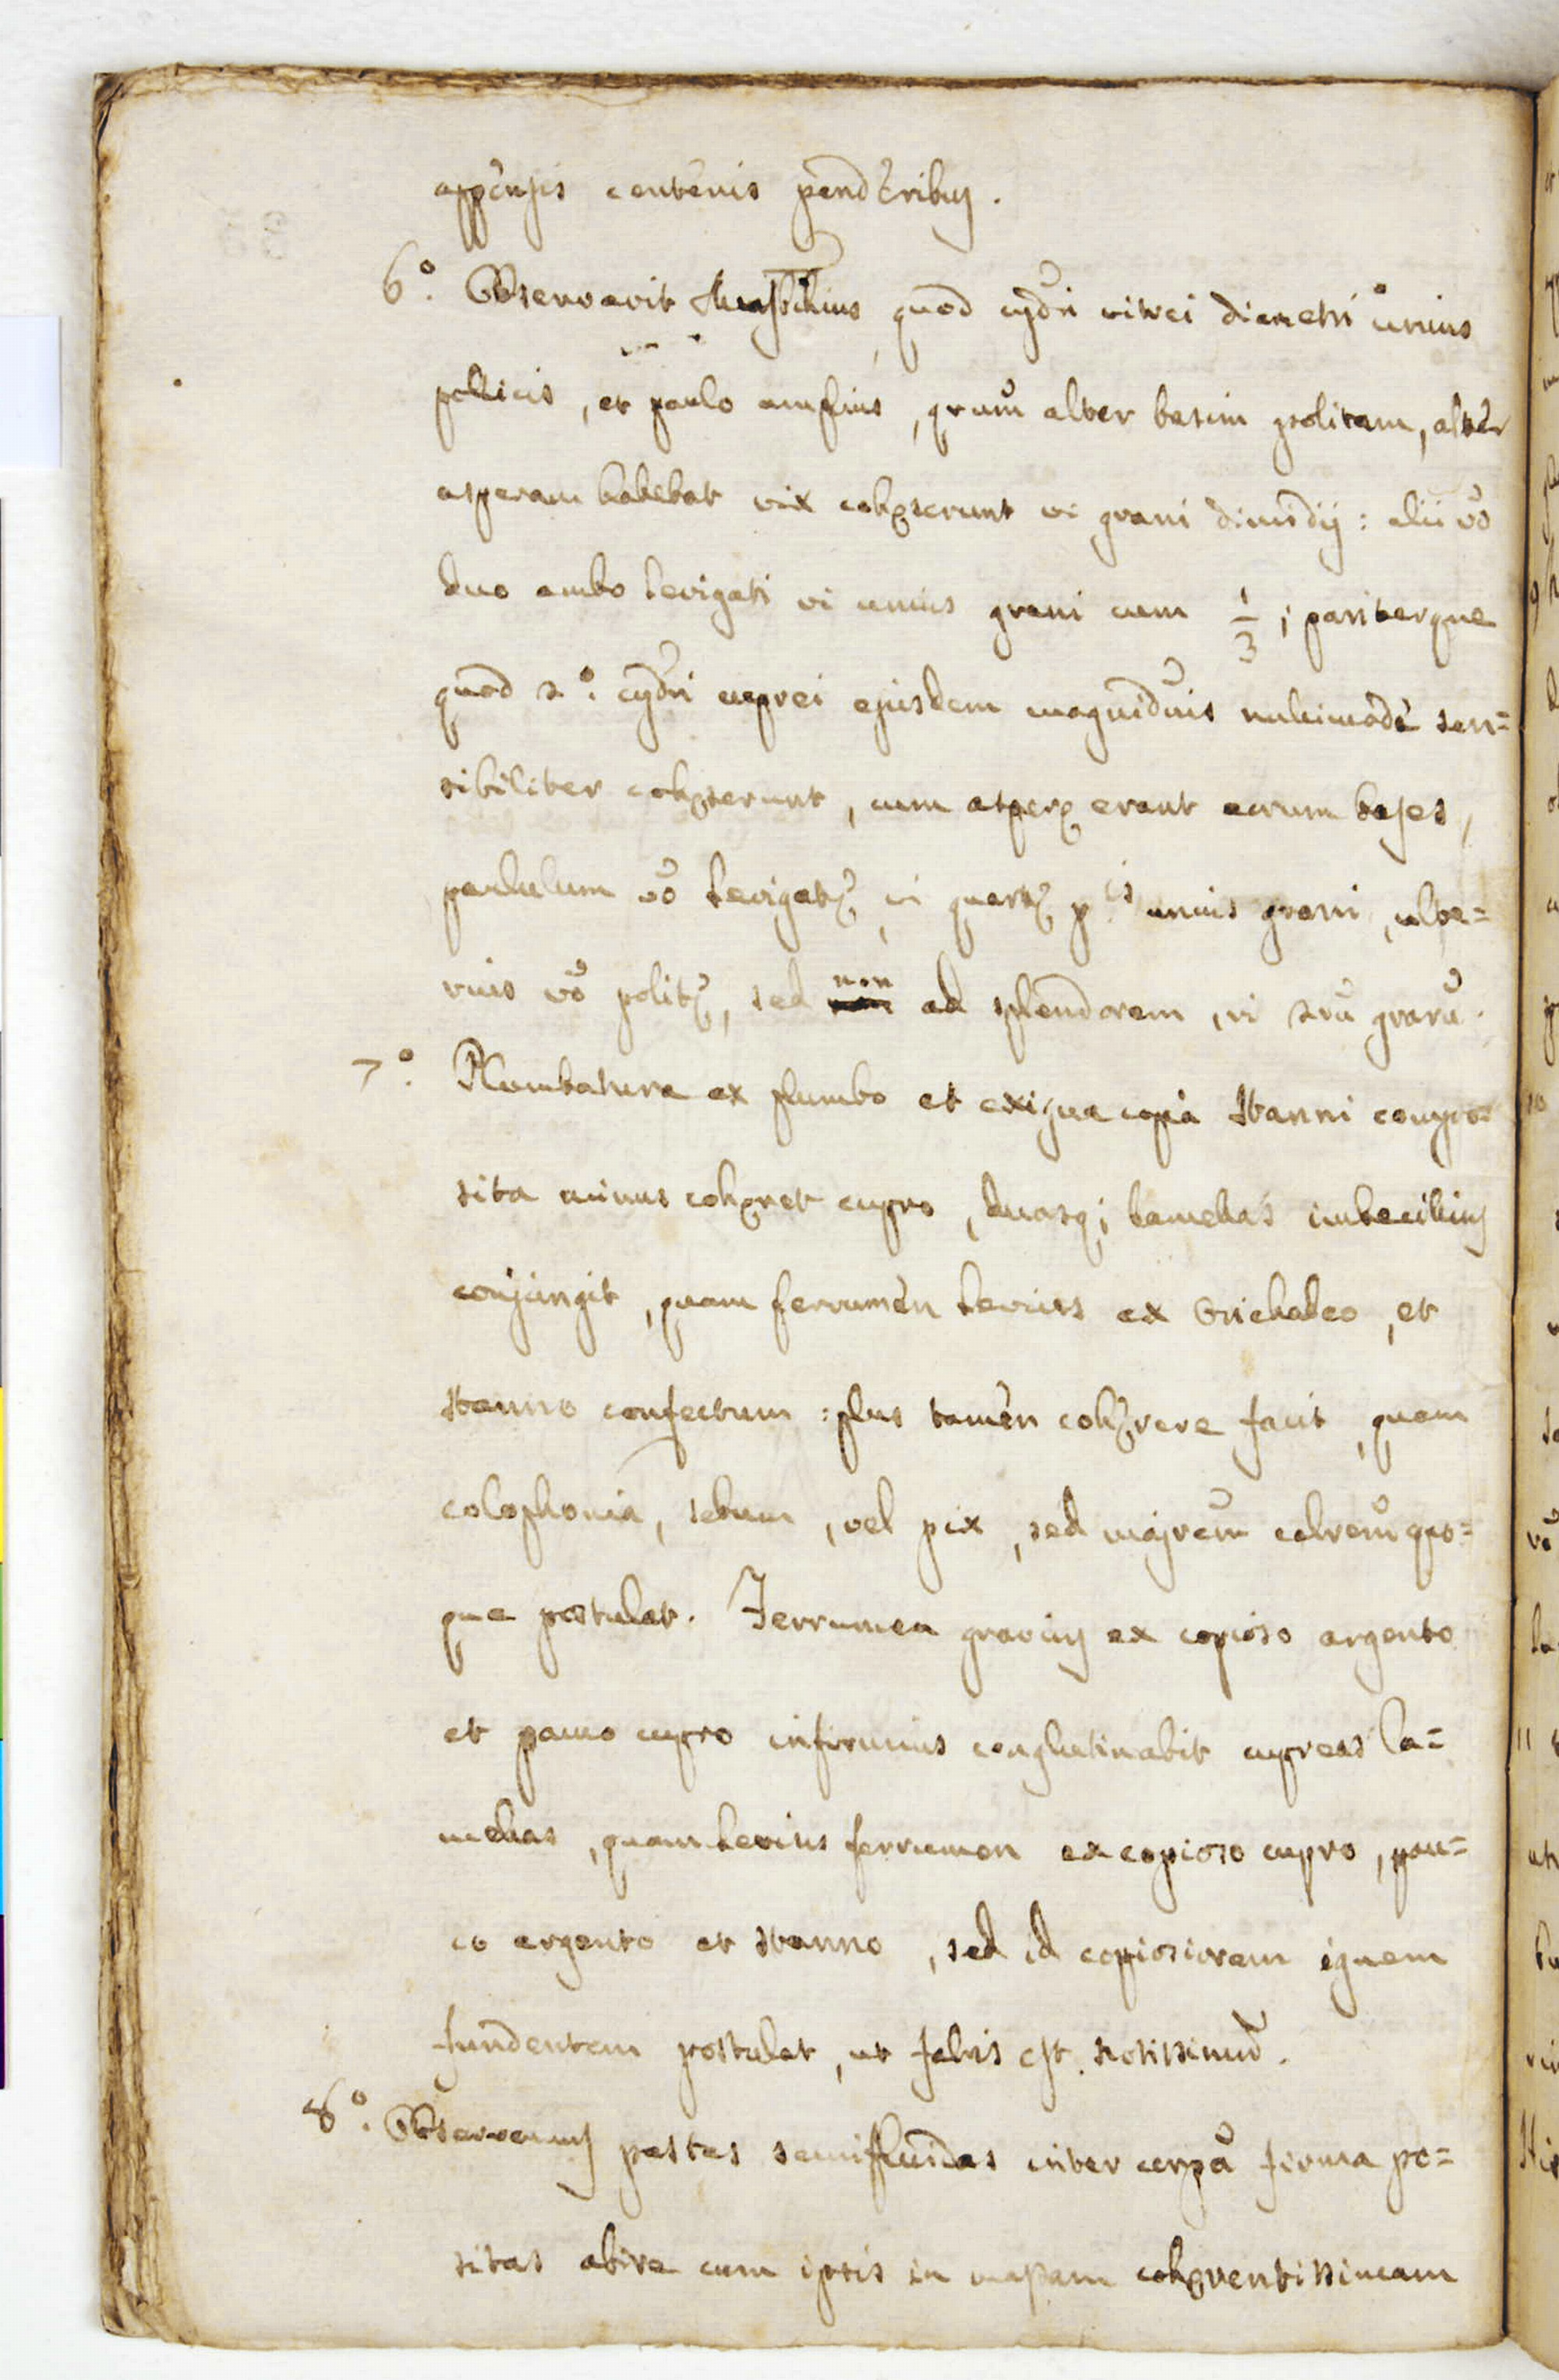 appensis centenis pendēribus.
6º. Observavit Musschius quod cydri vitrei diametri unius
pollicis, et paulo amplius, quum alter basim politam, alter
asperam habebat vix cohęserunt vi grani dimidij: alii vo
duo ambo levigati vi unius grani cum 1/3; pariterque
quod 2º. cydri cuprei ejusdem magniduis nullimode sen=
sibiliter cohęserunt, cum asperę erant earum bases,
paululum vo levigatę, vi quartę ptis unius grani, ulte=
rius vo politę, sed non ad splendorem, vi triu granu.
7º. Plumbatura ex plumbo et exigua copia stanni compo=
sita minus cohęret cupro, duasq; lamellas imbecilius
conjungit, quam ferrumen levius ex orichalco, et
stanno confectum: plus tamen cohęrere facit, quam
colophonia, sebum, vel pix, sed majrem calrem quo=
que postulat. Ferrumen gravius ex copioso argento
et pauco cupro infirmius conglutinabit cupreas la=
mellas, quam levius ferrumen ex copioso cupro, pau=
co argento et stanno, sed id copiosiorem ignem
fundentem postulat, ut fabris est notissimu.
8º. Observamus pastas semifluidas inter corpa firma po=
sitas abire cum ipsis in massam cohęrentissimam